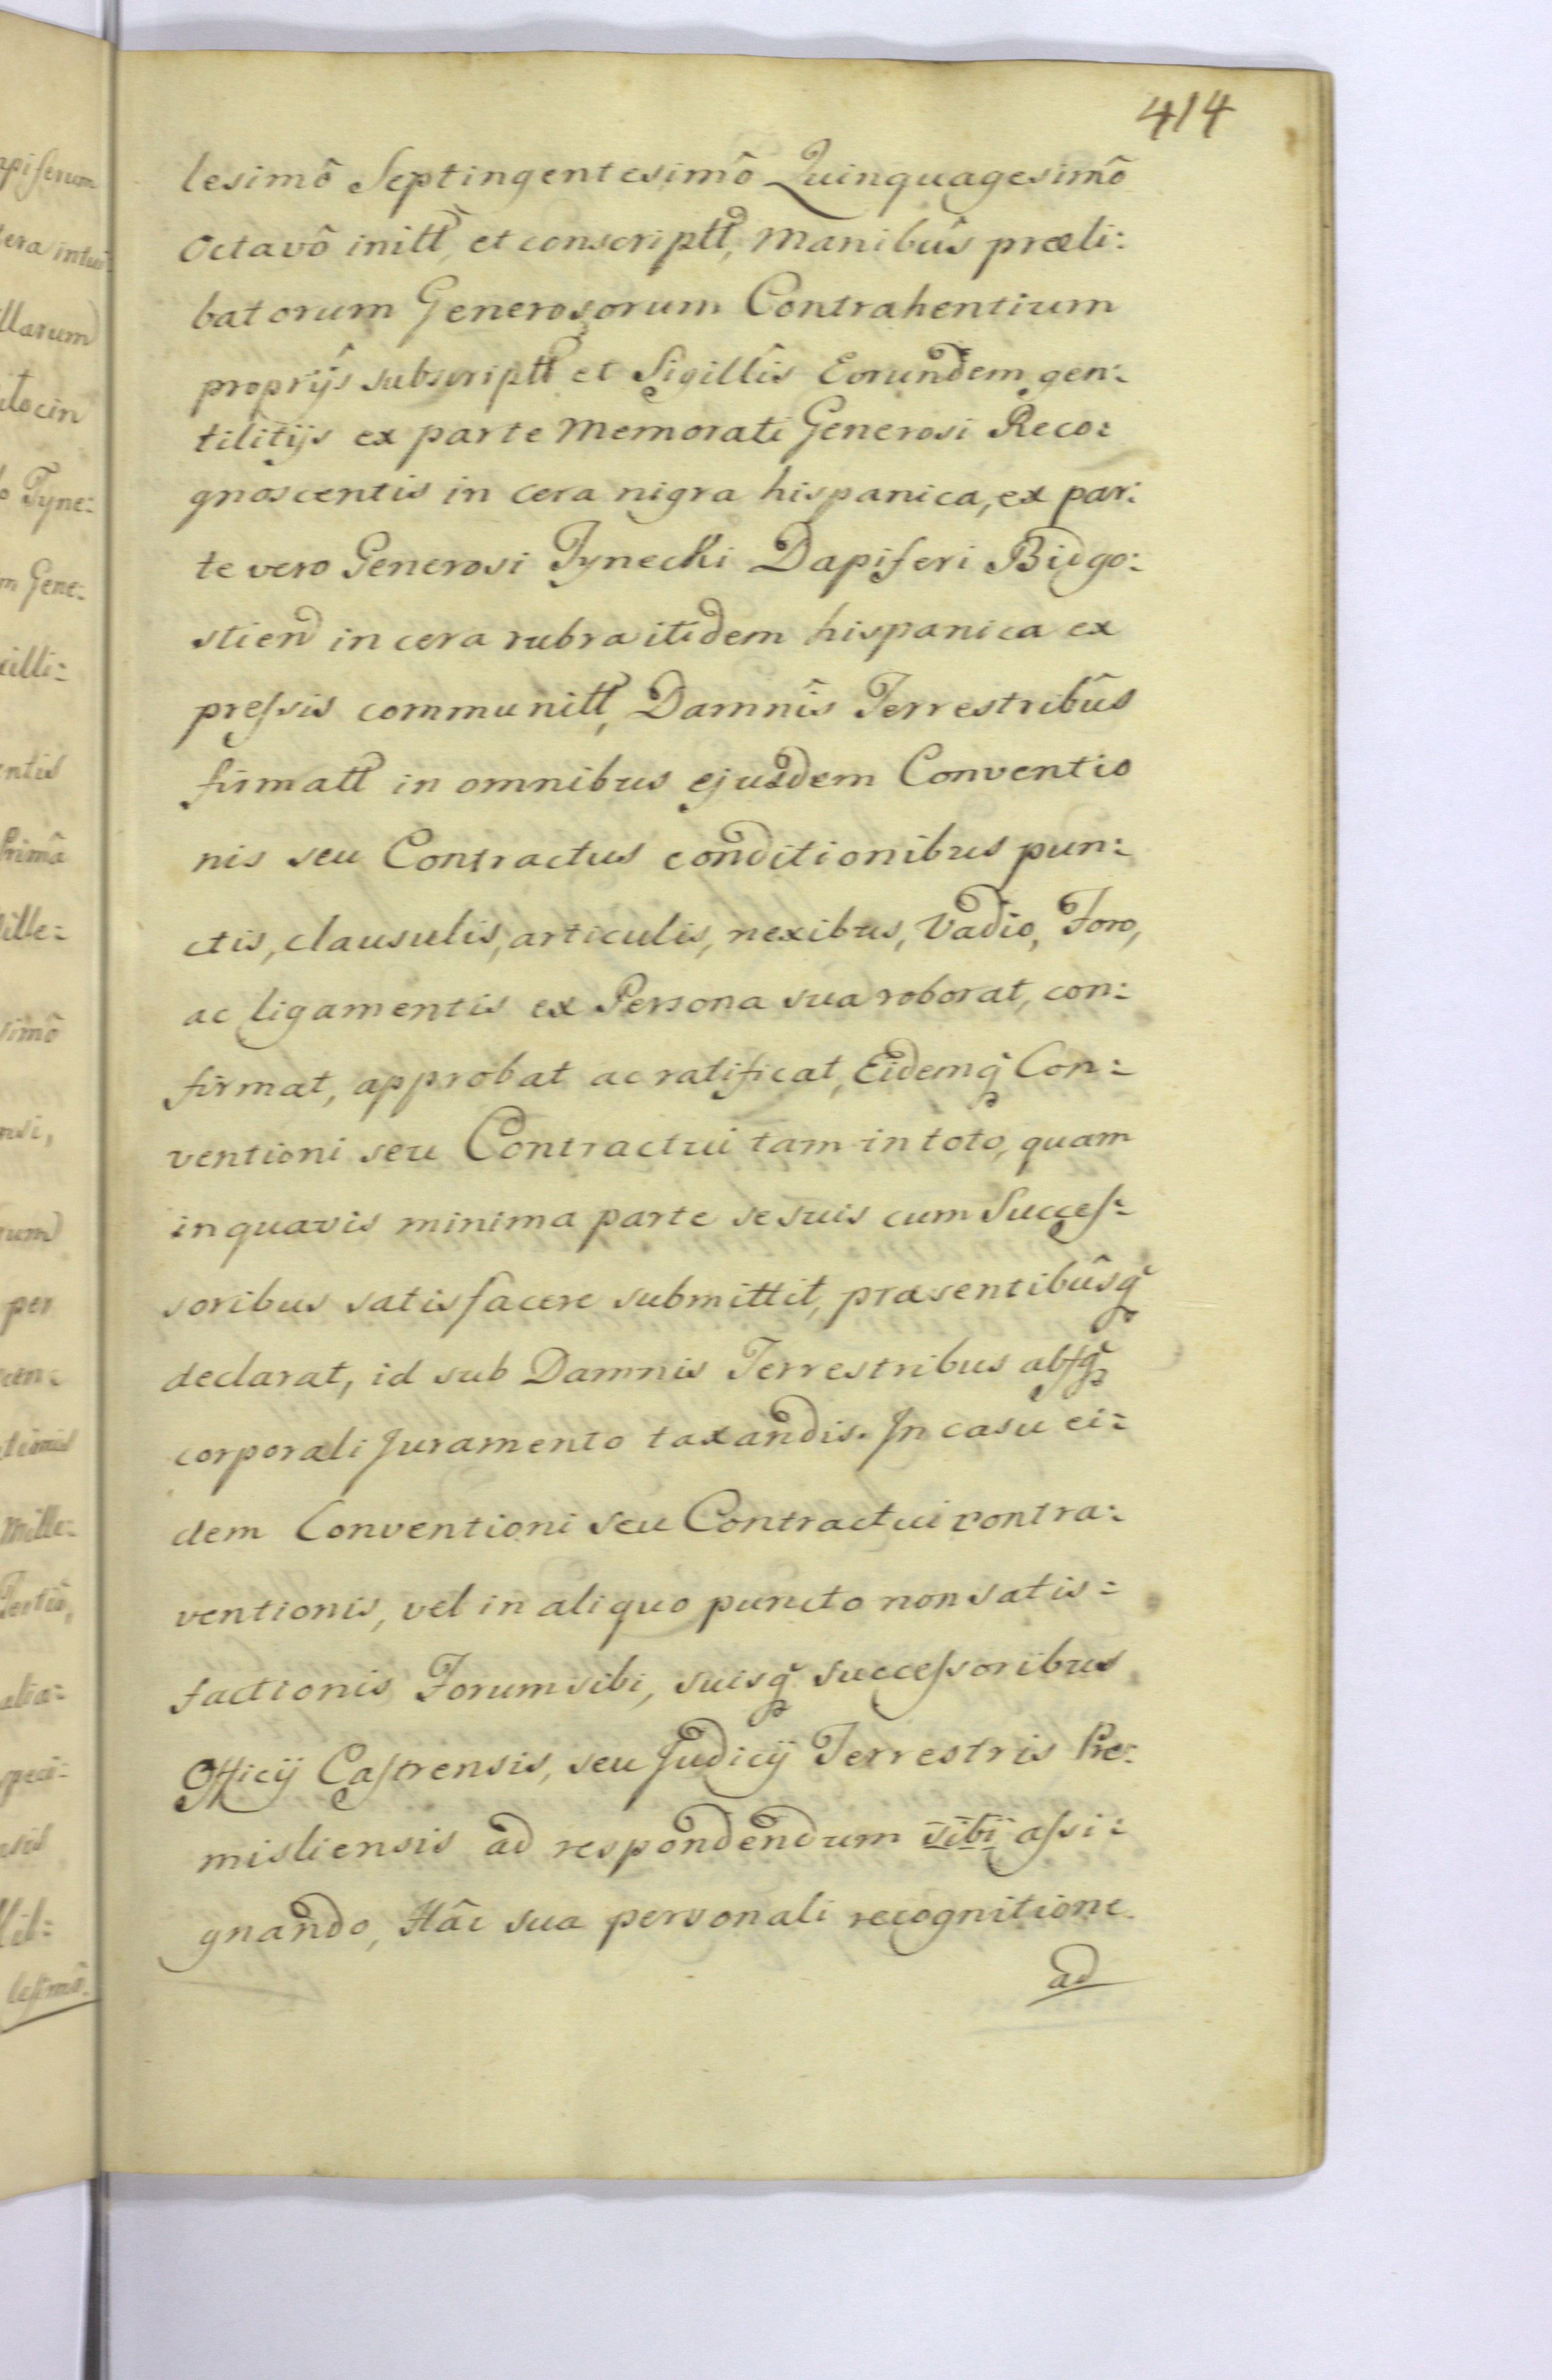 414
lesimô Septingentesimô Quinquagesimô
Octavô initt, et conscriptt, Manibûs præli:
batorum Generosorum Contrahentium
proprijs subscriptt et Sigillîs Eorundem gen:
tilitijs ex parte Memorati Generosi Reco:
gnoscentis in cera nigra hispanica, ex par:
te vero Generosi Tynecki Dapiferi Bidgo:
stien in cera rubra itidem hispanica ex
preſsis communitt, Damnîs Terrestribûs
firmatt in omnibus ejusdem Conventio
nis seu Contractus conditionibus pun:
ctis, clausulis, articulis, nexibus, Vadio, Foro,
ac ligamentis ex Persona sua roborat, con:
firmat, approbat ac ratificat, Eidemq̃ Con:
ventioni seu Contractui tam in toto, quam
in quavis minima parte se suis cum Succeſ:
soribus satisfacere submittit, præsentibûsq̃
declarat, id sub Damnis Terrestribus abſq̃
corporali Juramento taxandis. In casu ei:
dem Conventioni seu Contractui contra:
ventionis, vel in aliquo puncto non satis:
factionis Forum sibi, suisq̃ succeſsoribus
Officij Caſtrensis, seu Judicij Terrestris Pre:
misliensis ad respondendum sibi aſsi:
gnando, Hâc sua personali recognitione
ad
apiferum
llarum
itocin
Tyne:
m Gene:
cilli:
entis
Primâ
ille:
simô
per
Mille:
lesimô